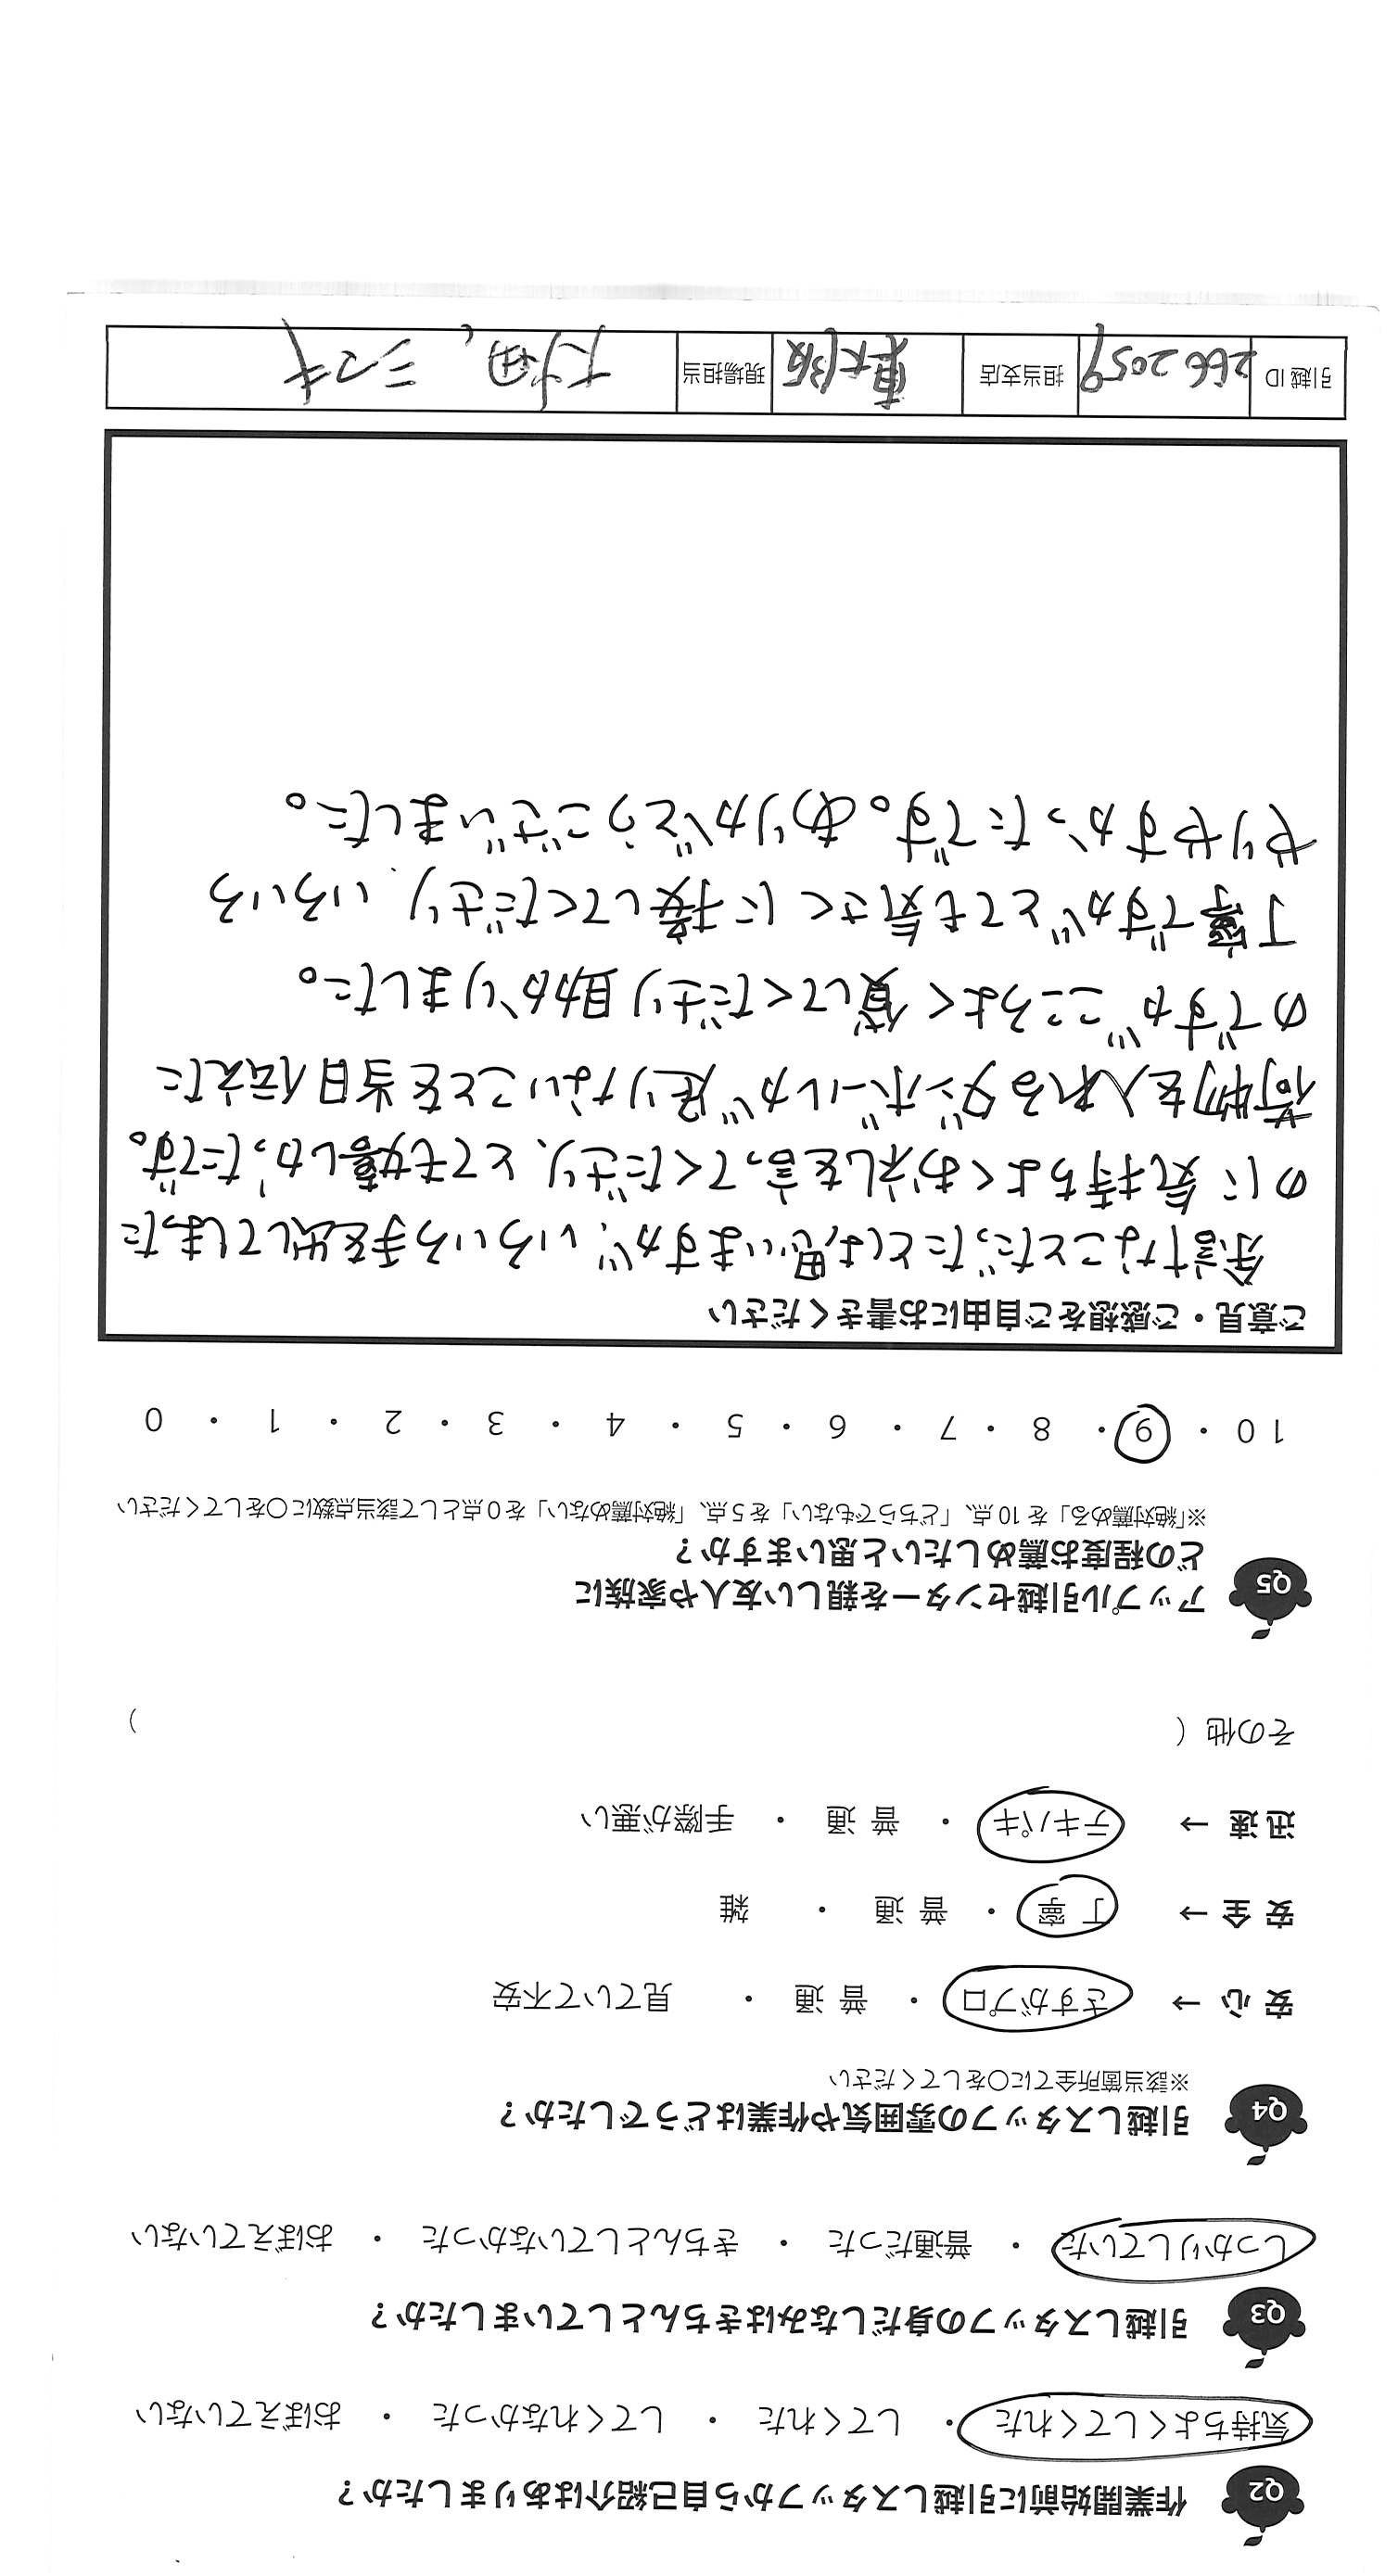 Q2 作業開始前に引越しスタッフから自己紹介はありましたか？
気持ちよくしてくれた ・ してくれた ・ してくれなかった ・ おぼえていない
Q3 引越しスタッフの身だしなみはきちんとしていましたか？
しっかりしていた ・ 普通だった ・ きちんとしていなかった ・ おぼえていない
Q4 引越しスタッフの雰囲気や作業はどうでしたか？
※該当箇所全てに○をしてください
安心 → さすがプロ ・ 普通 ・ 見ていて不安
安全 → 丁寧 ・ 普通 ・ 雑
迅速 → テキパキ ・ 普通 ・ 手際が悪い
その他（ ）
Q5 アップル引越センターを親しい友人や家族に
どの程度お薦めしたいと思いますか？
※「絶対薦める」を10点、「どちらでもない」を5点、「絶対薦めない」を0点として該当点数に○をしてください
10 ・ 9 ・ 8 ・ 7 ・ 6 ・ 5 ・ 4 ・ 3 ・ 2 ・ 1 ・ 0
ご意見・ご感想をご自由にお書きください
余計なことだったとは思いますが、いろいろ手を出してしまった
のに気持ちよくお礼を言ってくださり、とても嬉しかったです。
荷物を入れるダンボールが足りないことを当日伝えた
のですが こころよく貸してくださり助かりました。
丁寧ですがとても気さくに接してくださり、いろいろ
やりやすかったです。ありがとうございました。
引越ID 2662059 担当支店 東大阪 現場担当 大畑、ミツキ